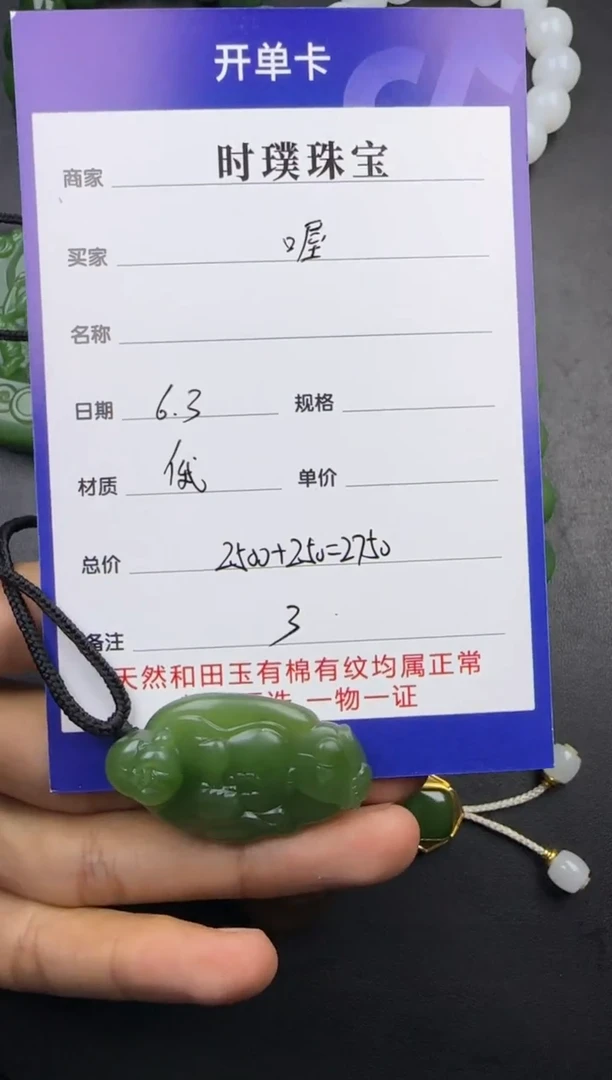 开单卡
商家 时璞珠宝
买家 喔
名称
日期 6.3 规格
材质 单价
总价 2500+250=2750
备注 3
天然和田玉有棉有纹均属正常
一物一证